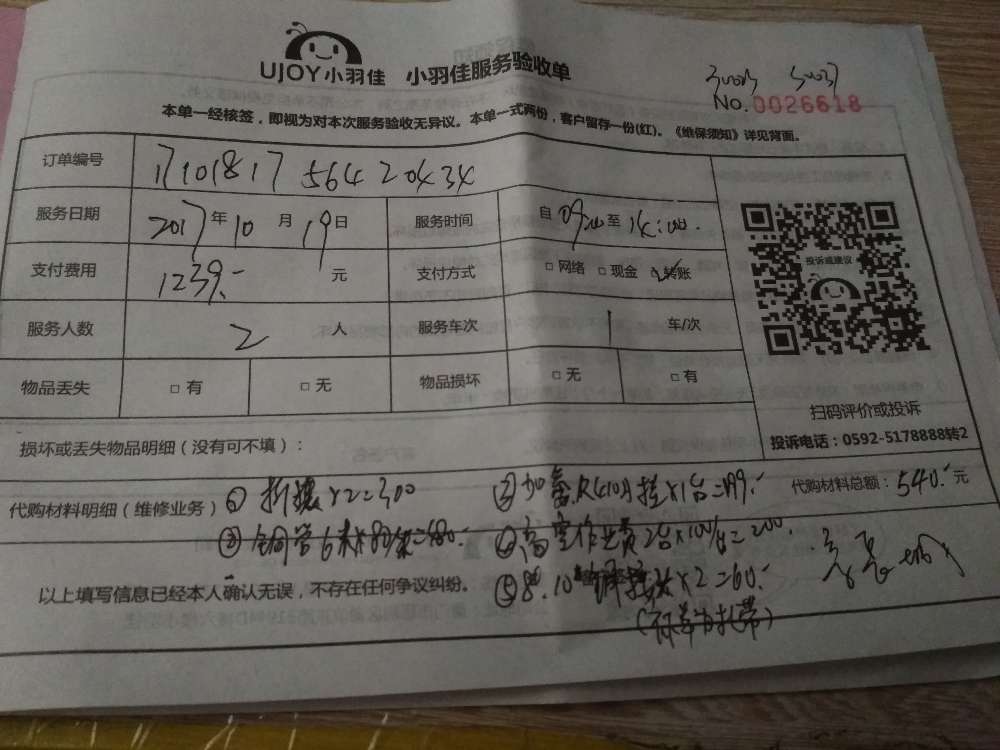 UJOY小羽佳 小羽佳服务验收单
No.0026618
本单一经核签，即视为对本次服务验收无异议。本单一式两份，客户留存一份(红)。《维保须知》详见背面。
订单编号 17101817 564 20434
服务日期 2017年10月19日 服务时间 自 至 14:00
支付费用 1239.- 元 支付方式 □网络 □现金 ☑转账
服务人数 2 人 服务车次 1 车/次
物品丢失 □有 □无 物品损坏 □无 □有
投诉或建议
扫码评价或投诉
投诉电话：0592-5178888转2
损坏或丢失物品明细（没有可不填）：
代购材料明细（维修业务） ① 拆装×2=300 ② 加氟R410 挂×1台=199.- 代购材料总额：540.- 元
③ 铜管6米×80/米=480.- ④ 高空作业费2台×100/台=200.
以上填写信息已经本人确认无误，不存在任何争议纠纷。 ⑤ ×2=60.-